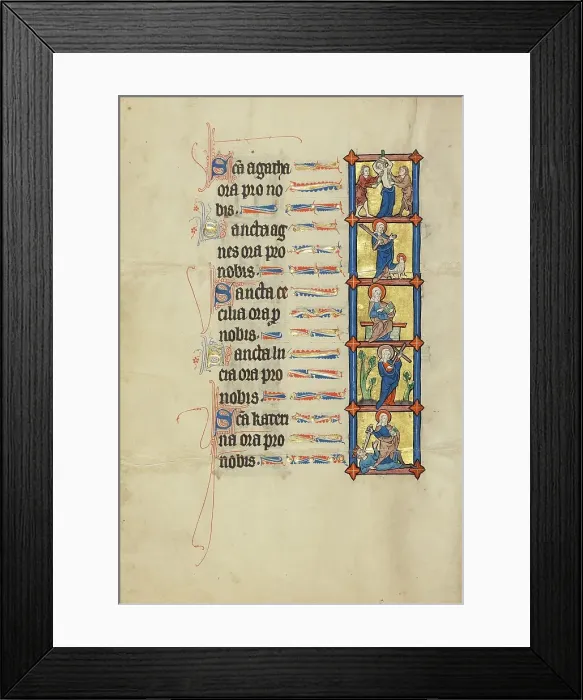 Sca agatha
ora pro no
bis.
Sancta ag
nes ora pro
nobis.
Sancta ce
cilia ora p
nobis.
Sancta lu
cia ora pro
nobis.
Sca kateri
na ora pro
nobis.